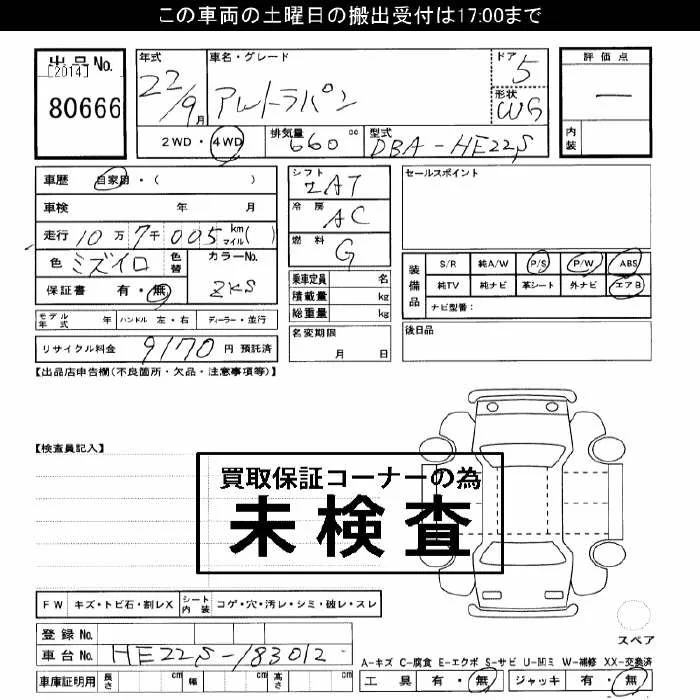 この車両の土曜日の搬出受付は17:00まで
出品No.
[2014]
80666
年式 22/9月
車名・グレード アルトラパン
ドア 5
形状 WG
評価点 ー
内装
2WD・4WD
排気量 660cc
型式 DBA-HE22S
車歴 自家用・( )
車検 年 月
走行 10万7千005km マイル( )
色 ミズイロ 色替
カラーNo. ZKS
保証書 有・無
シフト IAT
冷房 AC
燃料 G
セールスポイント
装備品
S/R 純A/W P/S P/W ABS
純TV 純ナビ 革シート 外ナビ エアB
ナビ型番:
乗車定員 名
積載量 kg
総重量 kg
モデル年式 年 ハンドル 左・右 ディーラー・並行
名変期限 月 日
後日品
リサイクル料金 9170円預託済
【出品店申告欄(不良箇所・欠品・注意事項等)】
【検査員記入】
買取保証コーナーの為
未検査
FW キズ・トビ石・割レX シート内装 コゲ・穴・汚レ・シミ・破レ・スレ
スペア
登録No.
車台No. HE22S-183012
車庫証明用 長さ cm 幅 cm 高さ cm
A-キズ C-腐食 E-エクボ S-サビ U-凹ミ W-補修 XX-交換済
工具 有・無 ジャッキ 有・無